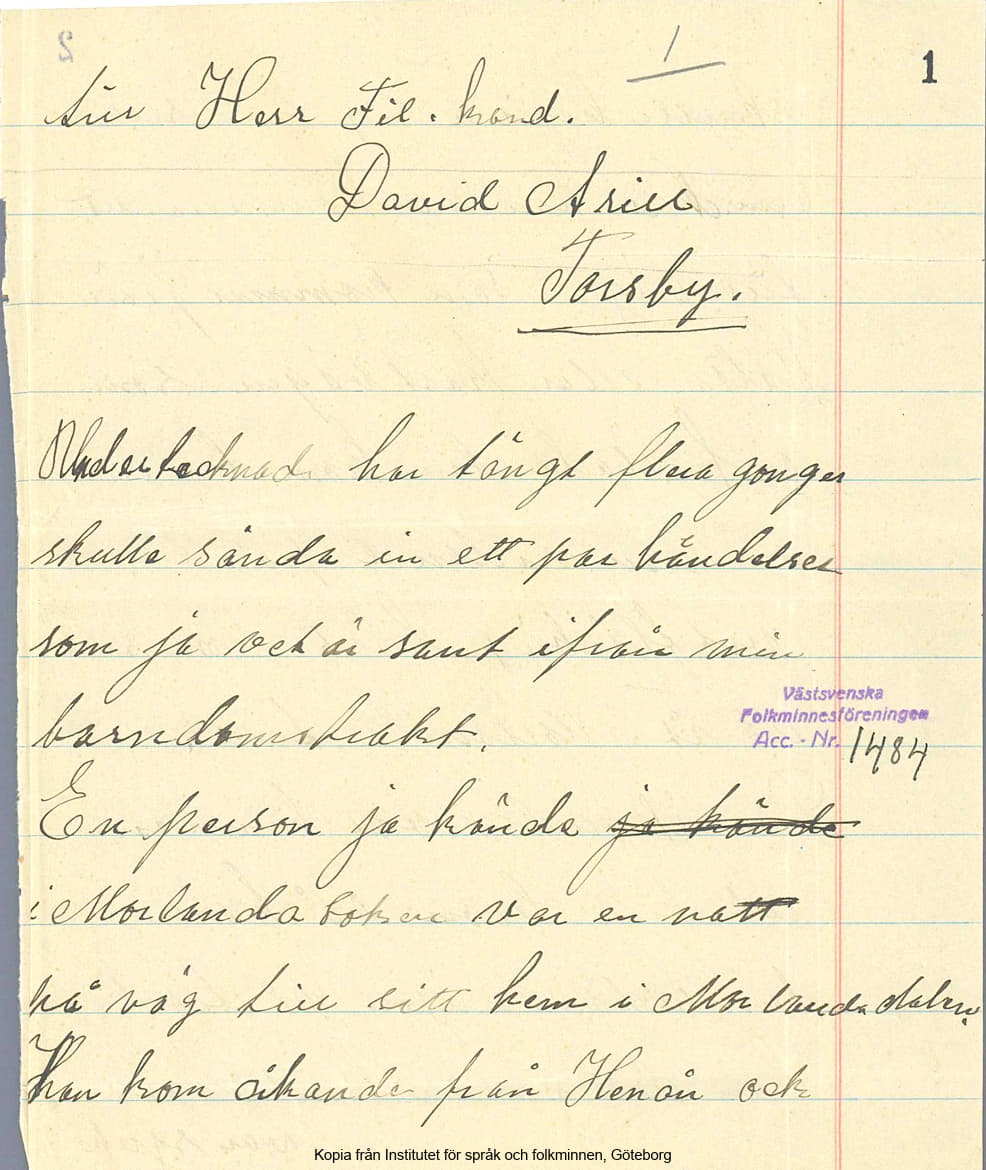 1
1
till Herr Fil. kand.
David Arill
Torsby.
Undertecknad har tängt flera gonger
skulle sända in ett par händelser
som ja vet är sant ifrån min
barndomstrakt.
Västsvenska
Folkminnesföreningen
Acc. - Nr. 1484
En person ja kände ja kände
i Morlanda Soken var en natt
på väg till sitt hem i Morlanda dalen.
Han kom åkande från Henån ock
Kopia från Institutet för språk och folkminnen, Göteborg